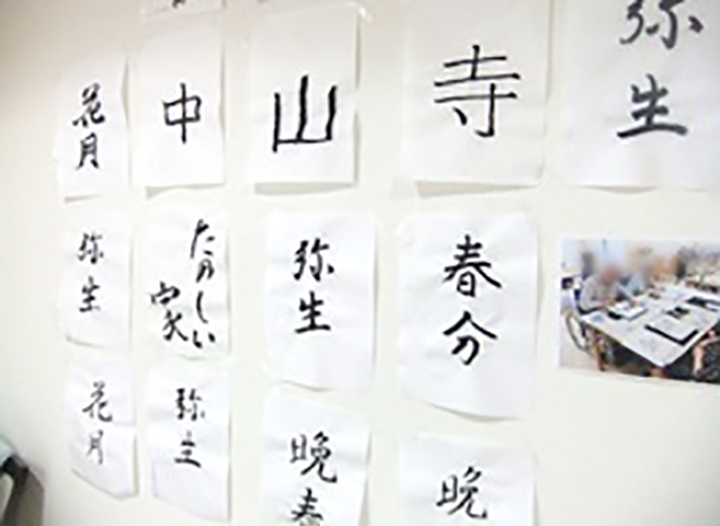 花月
中
山
寺
弥生
弥生
たのしい
家
弥生
春分
花月
弥生
晩春
晩